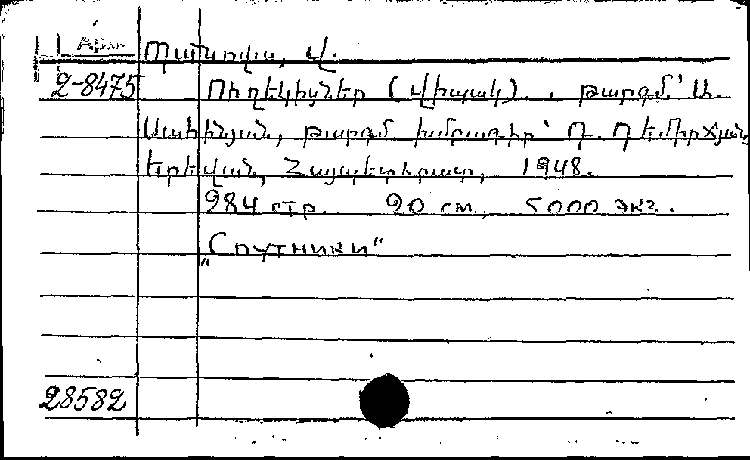 Арм Պանովա, Վ.
2-8475 Ուղեկիցներ (վիպակ). թարգմ՝ Ա.
Սահինյան, թարգմ. խմբագիր՝ Դ. Դեմիրճյան,
Երևան, Հայպետհրատ, 1948.
284 стр. 20 см. 5000 экз.
"Спутники"
28582